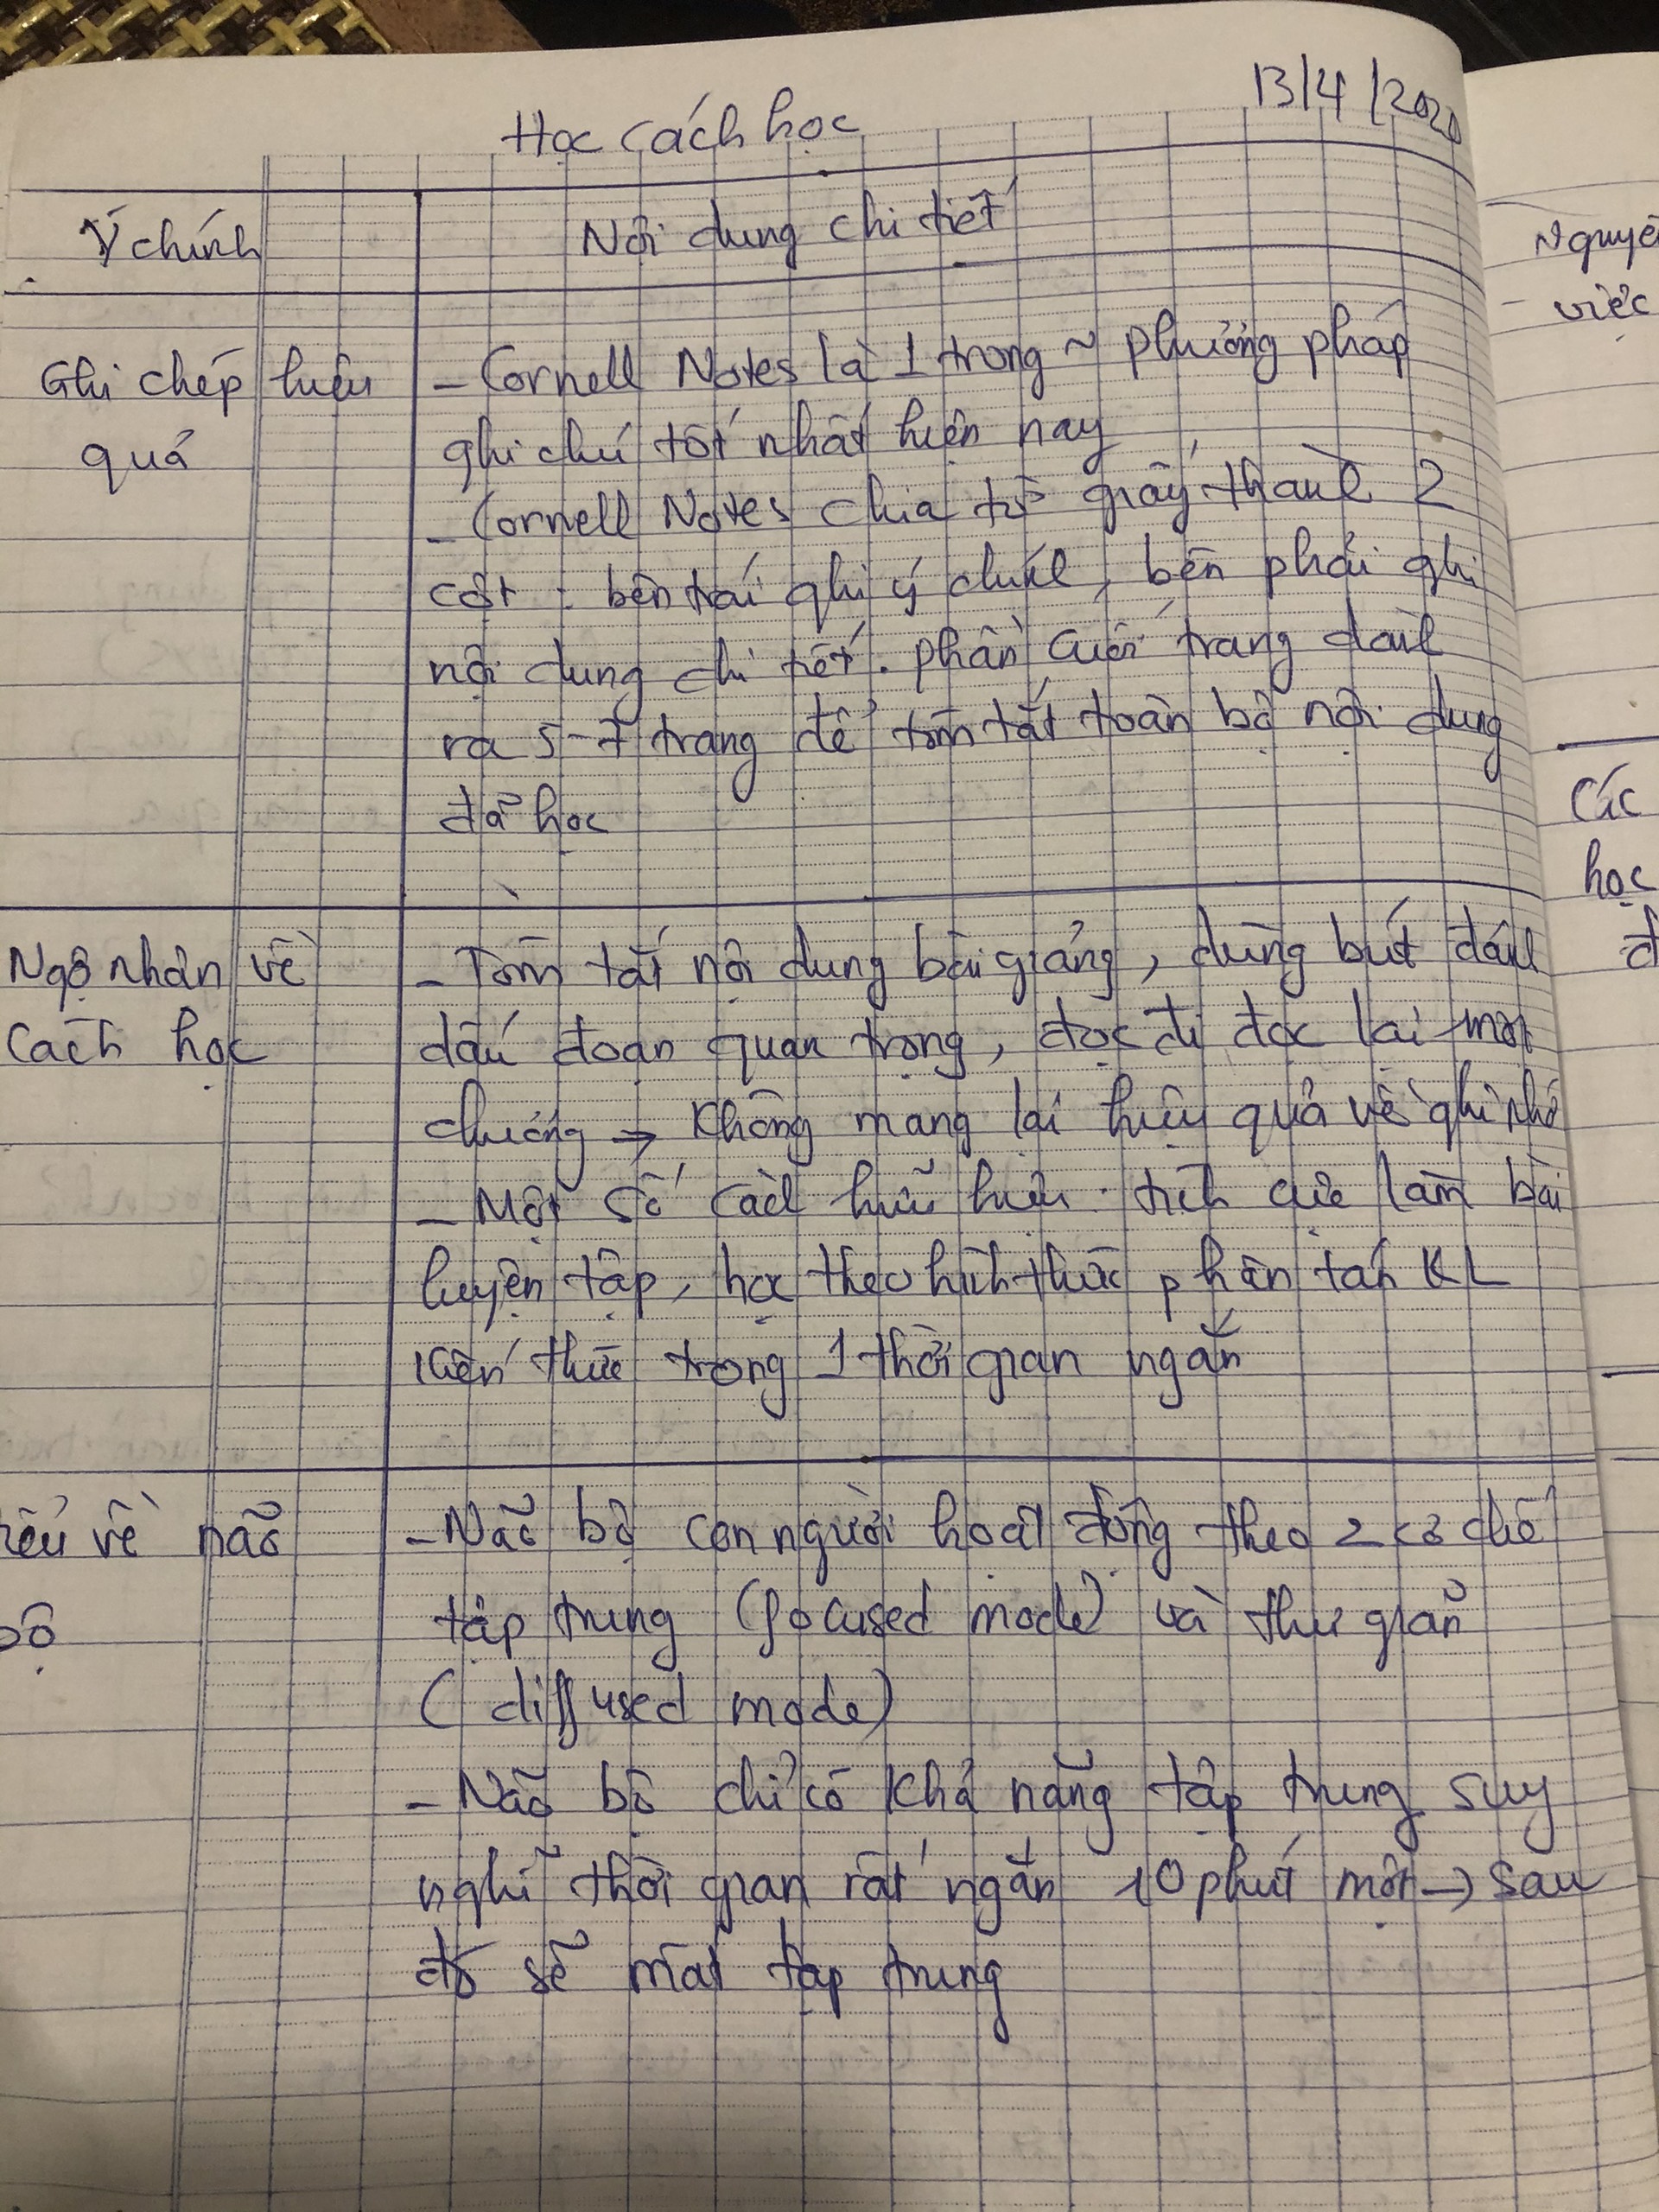 13/4/2020
Học cách học
Ý chính
Nội dung chi tiết
Ghi chép hiệu
quả
- Cornell Notes là 1 trong ~ phương pháp
ghi chú tốt nhất hiện nay
- Cornell Notes chia tờ giấy thành 2
cột : bên trái ghi ý chính, bên phải ghi
nội dung chi tiết. phần cuối trang dành
ra 5-7 trang để tóm tắt toàn bộ nội dung
đã học
Ngộ nhận về
Cách học
- Tóm tắt nội dung bài giảng, dùng bút đánh
dấu đoạn quan trọng, đọc đi đọc lại một
chương → Không mang lại hiệu quả về ghi nhớ
- Một số cách hữu hiệu : tích cực làm bài
luyện tập, học theo hình thức phân tán KL
kiến thức trong 1 thời gian ngắn
iểu về não
bộ
- Não bộ con người hoạt động theo 2 cơ chế
tập trung (focused mode) và thư giãn
( diffused mode)
- Não bộ chỉ có khả năng tập trung suy
nghĩ thời gian rất ngắn 10 phút một → sau
đó sẽ mất tập trung
Nguyê
việc
Các
học
đ